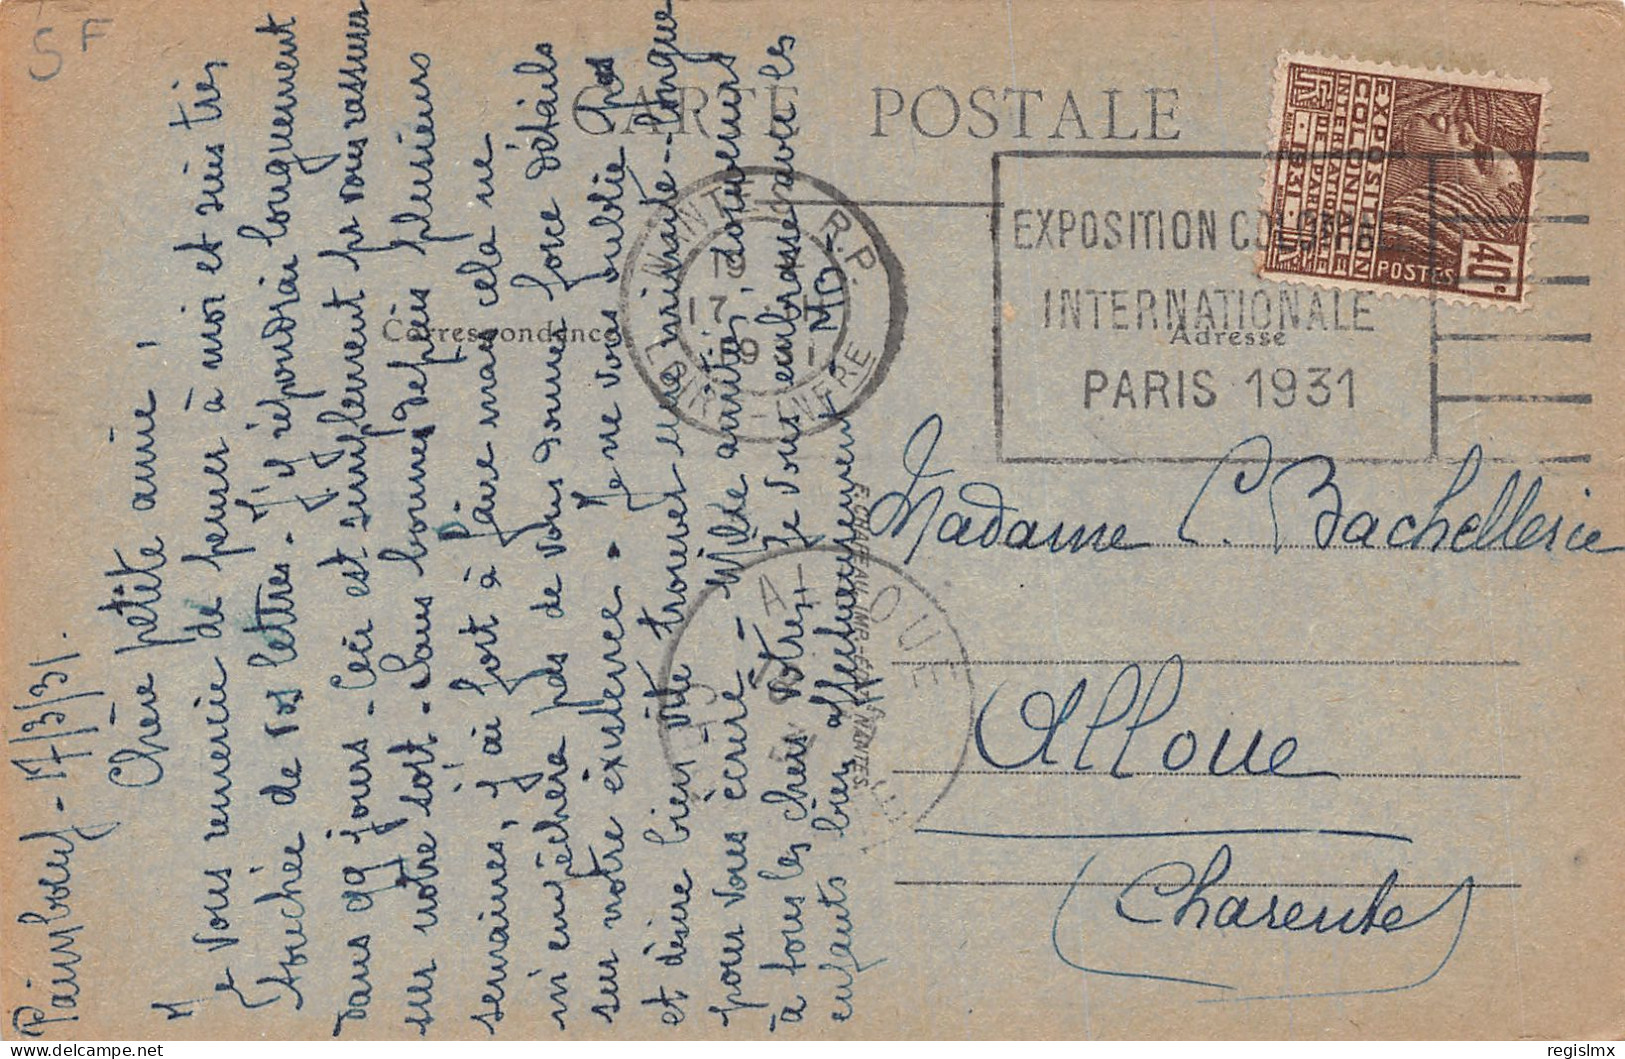 SF
CARTE POSTALE
Correspondance
Adresse
EXPOSITION COLONIALE
INTERNATIONALE
PARIS 1931
EXPOSITION
COLONIALE
INTERNATIONALE
DE PARIS
1931
POSTES
40c
NANTES R.P.
LOIRE-INFRE
ALLOUE
F. CHAPEAU, IMP.-EDIT., NANTES
Paimboeuf - 17/3/31.
Chère petite amie,
Je vous remercie de penser à moi et suis très
touchée de vos lettres. J'y répondrai longuement
dans qq jours - Ceci est simplement pr vous rassurer
sur notre sort. Sans bonne depuis plusieurs
semaines, j'ai fort à faire mais cela ne
m'empêchera pas de vous donner force détails
sur notre existence. Je ne vous oublie pas
et désire bien vite trouver une minute longue
pour vous écrire - Mille amitiés, doucement
à tous les chers vôtres. Je vous embrasse avec les
enfants bien affectueusement, MD.
Madame C. Bachellerie
Alloue
(Charente)
regislmx
www.delcampe.net